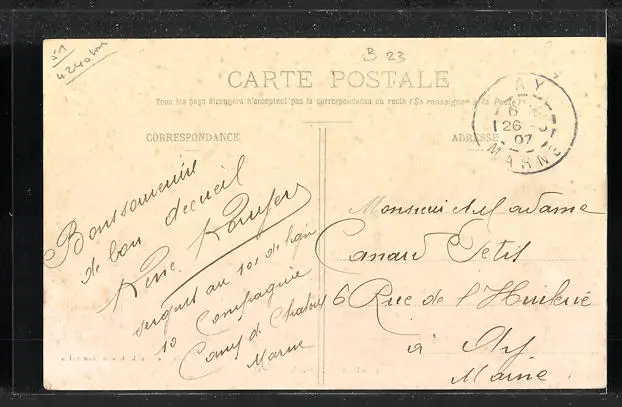 B 23
CARTE POSTALE
Tous les pays étrangers n'acceptent pas la correspondance au recto (Se renseigner à la Poste)
CORRESPONDANCE
ADRESSE
AY
6
26
07
MARNE
Bonssouvenirs
de bon accueil
sergent au 101 de ligne
10 Compagnie
Camp de Chalons
Marne
Monsieur et Madame
Canard Petit
6 Rue de l'Huilerie
à Ay
Marne